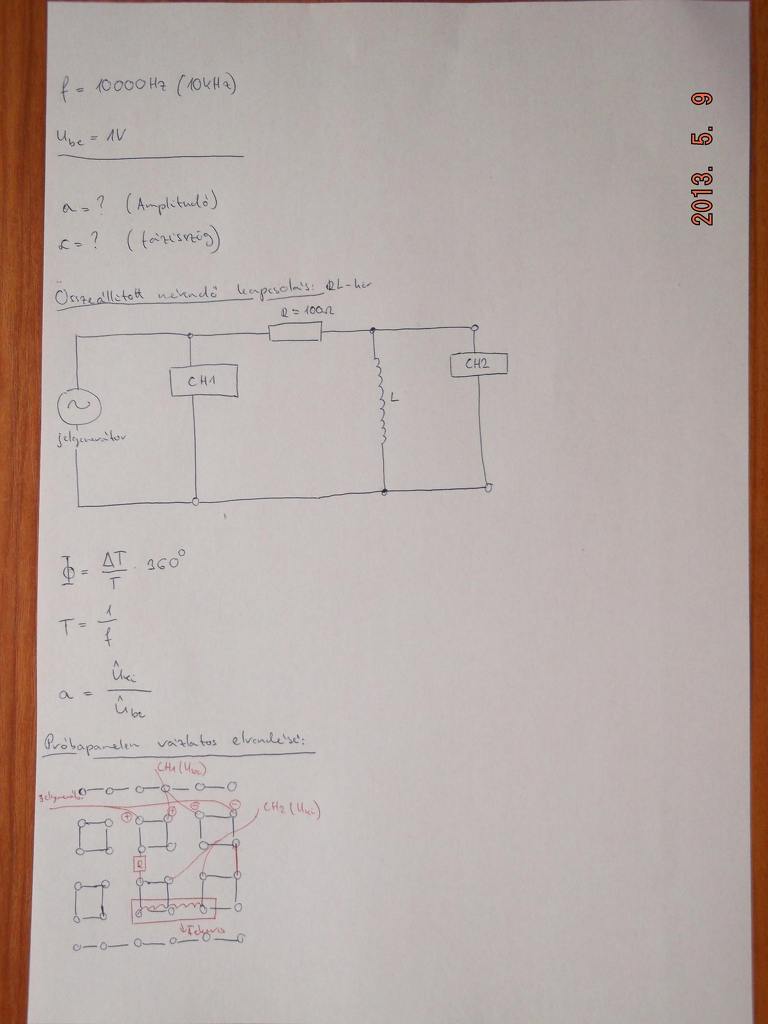 2013. 5. 9
f = 10000Hz (10kHz)
u_be = 1V
a = ? (Amplitudó)
α = ? (fázisszög)
Összeállított mérendő kapcsolás: RL-kör
R = 100Ω
CH1
CH2
L
jelgenerátor
Φ = ΔT/T · 360°
T = 1/f
a = û_ki/û_be
Próbapanelen vázlatos elrendezése:
CH1 (U_be)
jelgenerátor
+ + - -
CH2 (U_ki)
R